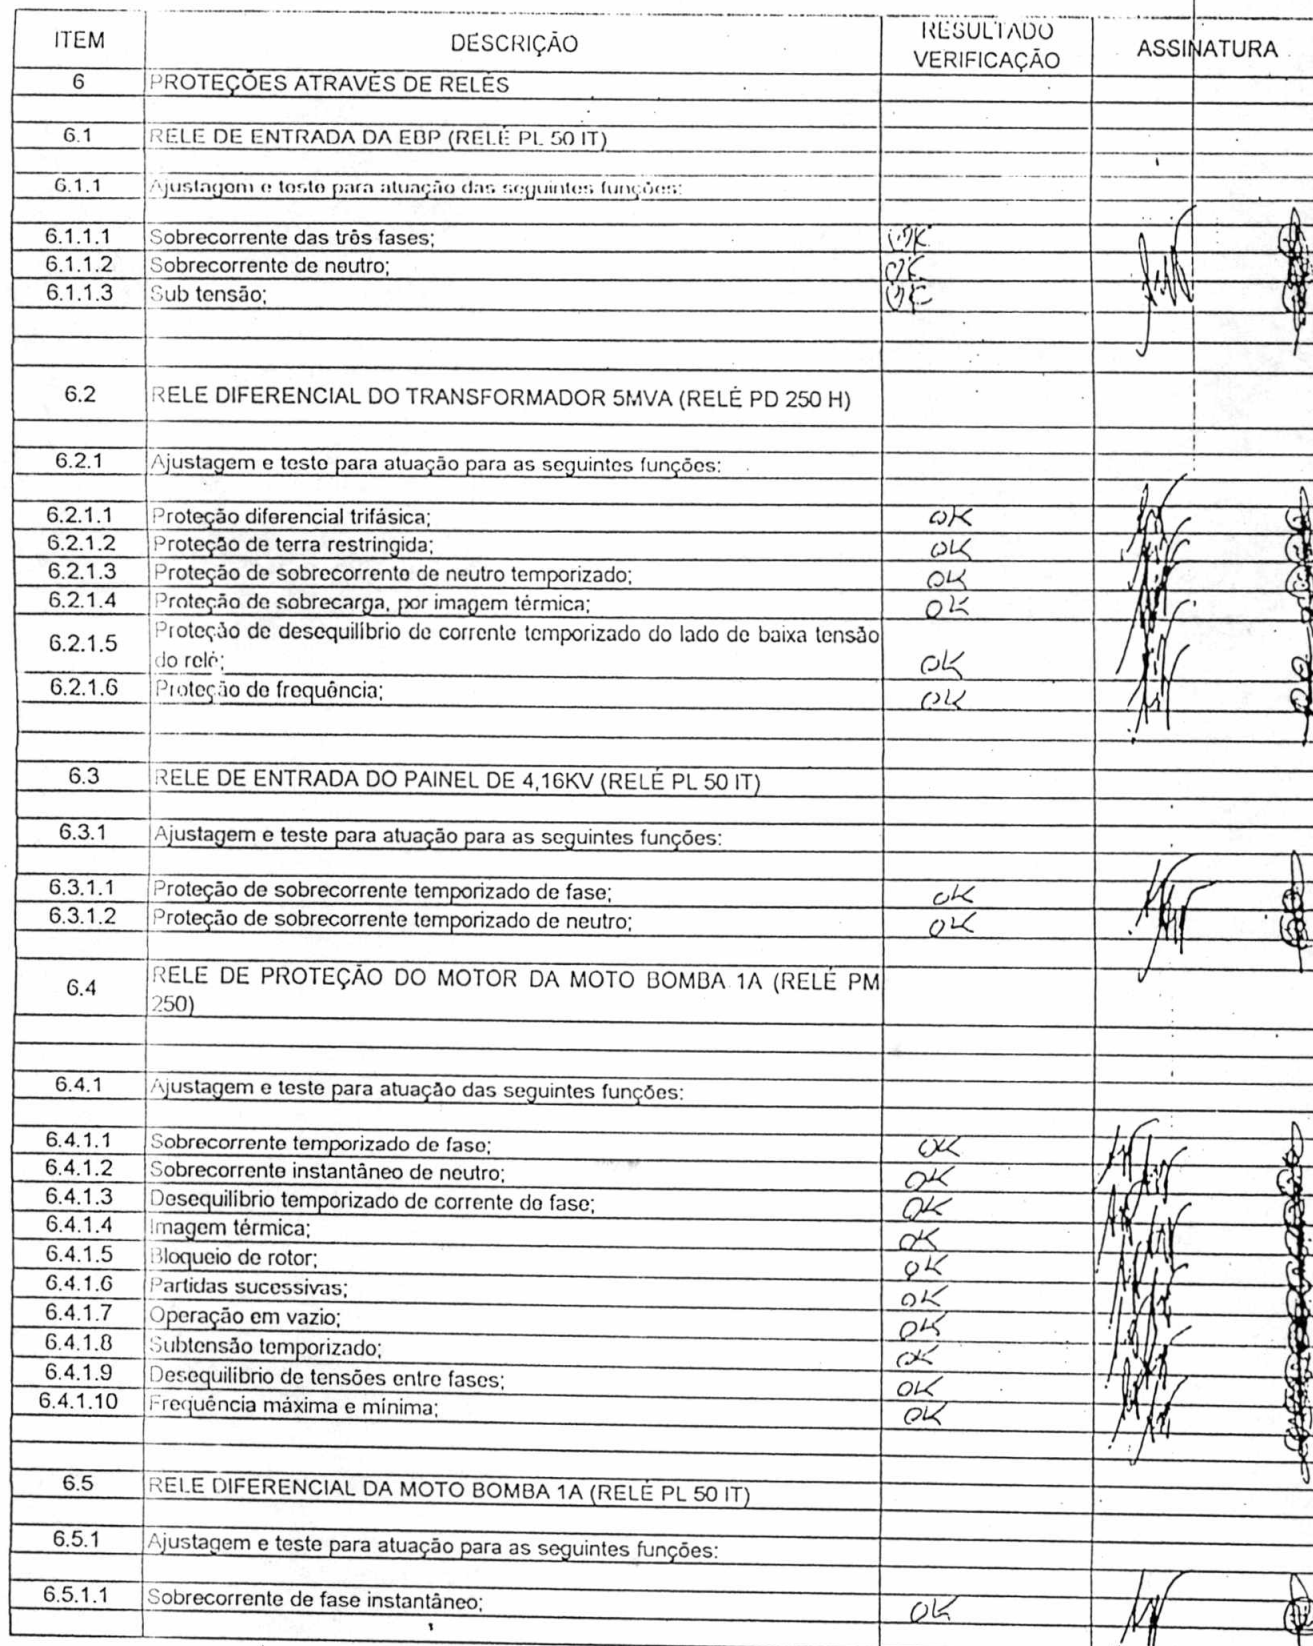 ITEM DESCRIÇÃO RESULTADO VERIFICAÇÃO ASSINATURA
6 PROTEÇÕES ATRAVÉS DE RELÉS
6.1 RELE DE ENTRADA DA EBP (RELÉ PL 50 IT)
6.1.1 Ajustagem e teste para atuação das seguintes funções:
6.1.1.1 Sobrecorrente das três fases; OK
6.1.1.2 Sobrecorrente de neutro; OK
6.1.1.3 Sub tensão; OK
6.2 RELE DIFERENCIAL DO TRANSFORMADOR 5MVA (RELÉ PD 250 H)
6.2.1 Ajustagem e teste para atuação para as seguintes funções:
6.2.1.1 Proteção diferencial trifásica; OK
6.2.1.2 Proteção de terra restringida; OK
6.2.1.3 Proteção de sobrecorrente de neutro temporizado; OK
6.2.1.4 Proteção de sobrecarga, por imagem térmica; OK
6.2.1.5 Proteção de desequilíbrio de corrente temporizado do lado de baixa tensão
do relé; OK
6.2.1.6 Proteção de frequência; OK
6.3 RELE DE ENTRADA DO PAINEL DE 4,16KV (RELÉ PL 50 IT)
6.3.1 Ajustagem e teste para atuação para as seguintes funções:
6.3.1.1 Proteção de sobrecorrente temporizado de fase; OK
6.3.1.2 Proteção de sobrecorrente temporizado de neutro; OK
6.4 RELE DE PROTEÇÃO DO MOTOR DA MOTO BOMBA 1A (RELÉ PM
250)
6.4.1 Ajustagem e teste para atuação das seguintes funções:
6.4.1.1 Sobrecorrente temporizado de fase; OK
6.4.1.2 Sobrecorrente instantâneo de neutro; OK
6.4.1.3 Desequilíbrio temporizado de corrente de fase; OK
6.4.1.4 Imagem térmica; OK
6.4.1.5 Bloqueio de rotor; OK
6.4.1.6 Partidas sucessivas; OK
6.4.1.7 Operação em vazio; OK
6.4.1.8 Subtensão temporizado; OK
6.4.1.9 Desequilíbrio de tensões entre fases; OK
6.4.1.10 Frequência máxima e mínima; OK
6.5 RELE DIFERENCIAL DA MOTO BOMBA 1A (RELÉ PL 50 IT)
6.5.1 Ajustagem e teste para atuação para as seguintes funções:
6.5.1.1 Sobrecorrente de fase instantâneo; OK